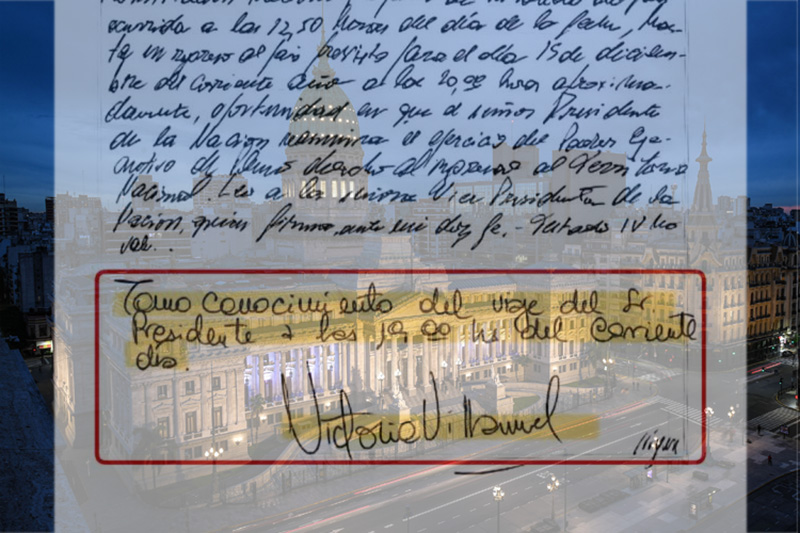 ocurrida a las 12,50 horas del día de la fecha,
previsto para el día 15 de diciem-
bre del corriente año a las 20,00 horas aproxima-
damente, oportunidad en que el señor Presidente
de la Nación reasumirá el ejercicio del Poder Eje-
cutivo de pleno derecho al ingresar al Territorio
Nacional. Leo a la señora Vice Presidenta de la
Nación, quien firma, ante mi doy fe.- Testado IV No
vale.
Tomo conocimiento del viaje del Sr
Presidente a las 19 00 hs del corriente
día.
Victoria Villarruel